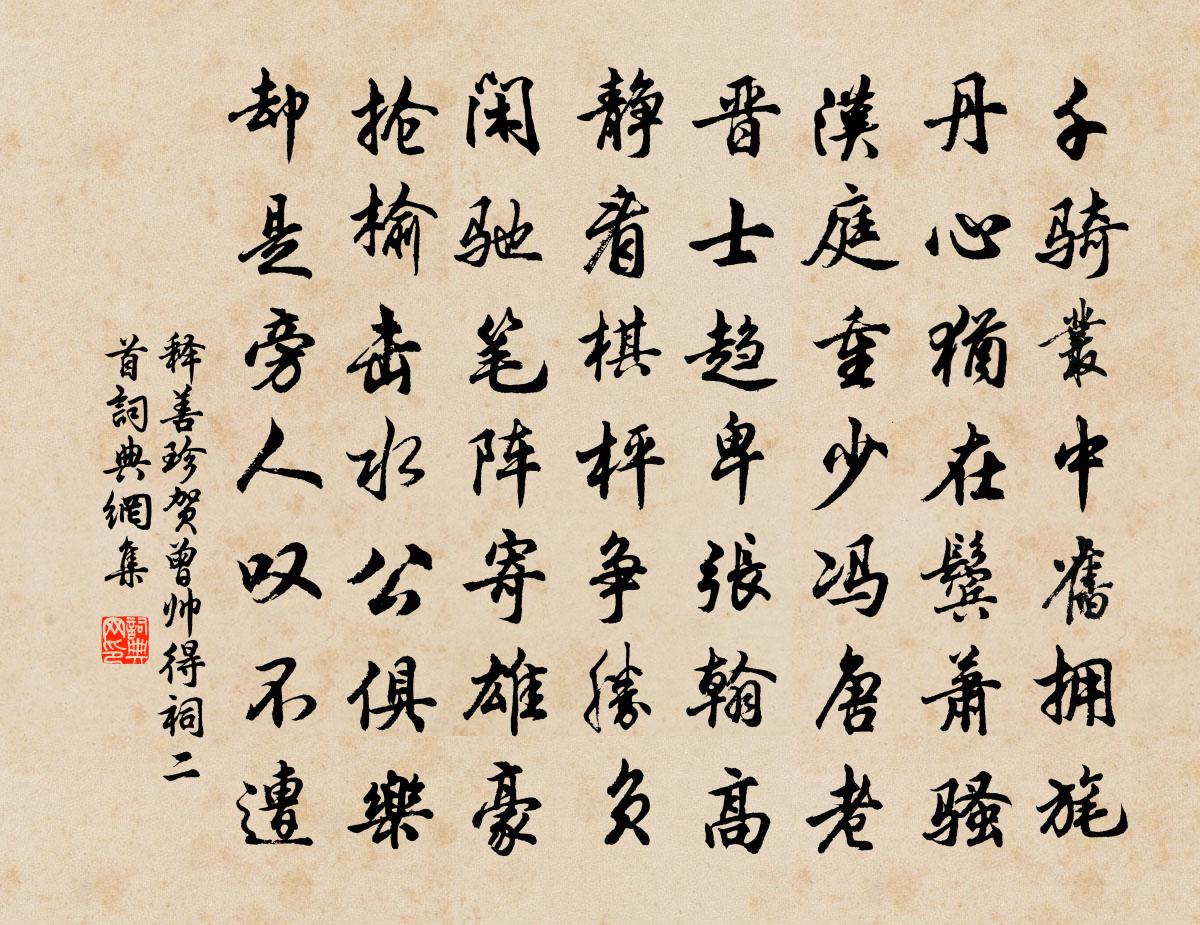 千骑叢中舊拥旄
丹心猶在鬓萧骚
漢庭重少冯唐老
晋士趋卑張翰高
静看棋枰争勝负
闲驰笔阵寄雄豪
抢榆击水公俱樂
却是旁人叹不遭
释善珍贺曾帅得祠二
首詞典網集
詞典
网印